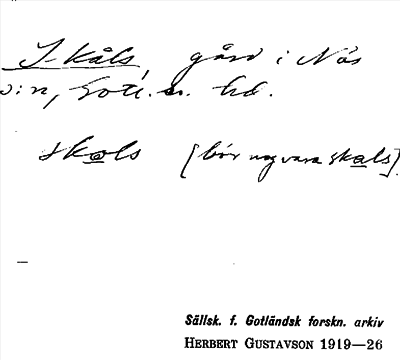 Skåls, gård i Näs
s:n, Gotl. s. hd.
skols [bör nog vara skals]
Sällsk. f. Gotländsk forskn. arkiv
HERBERT GUSTAVSON 1919—26